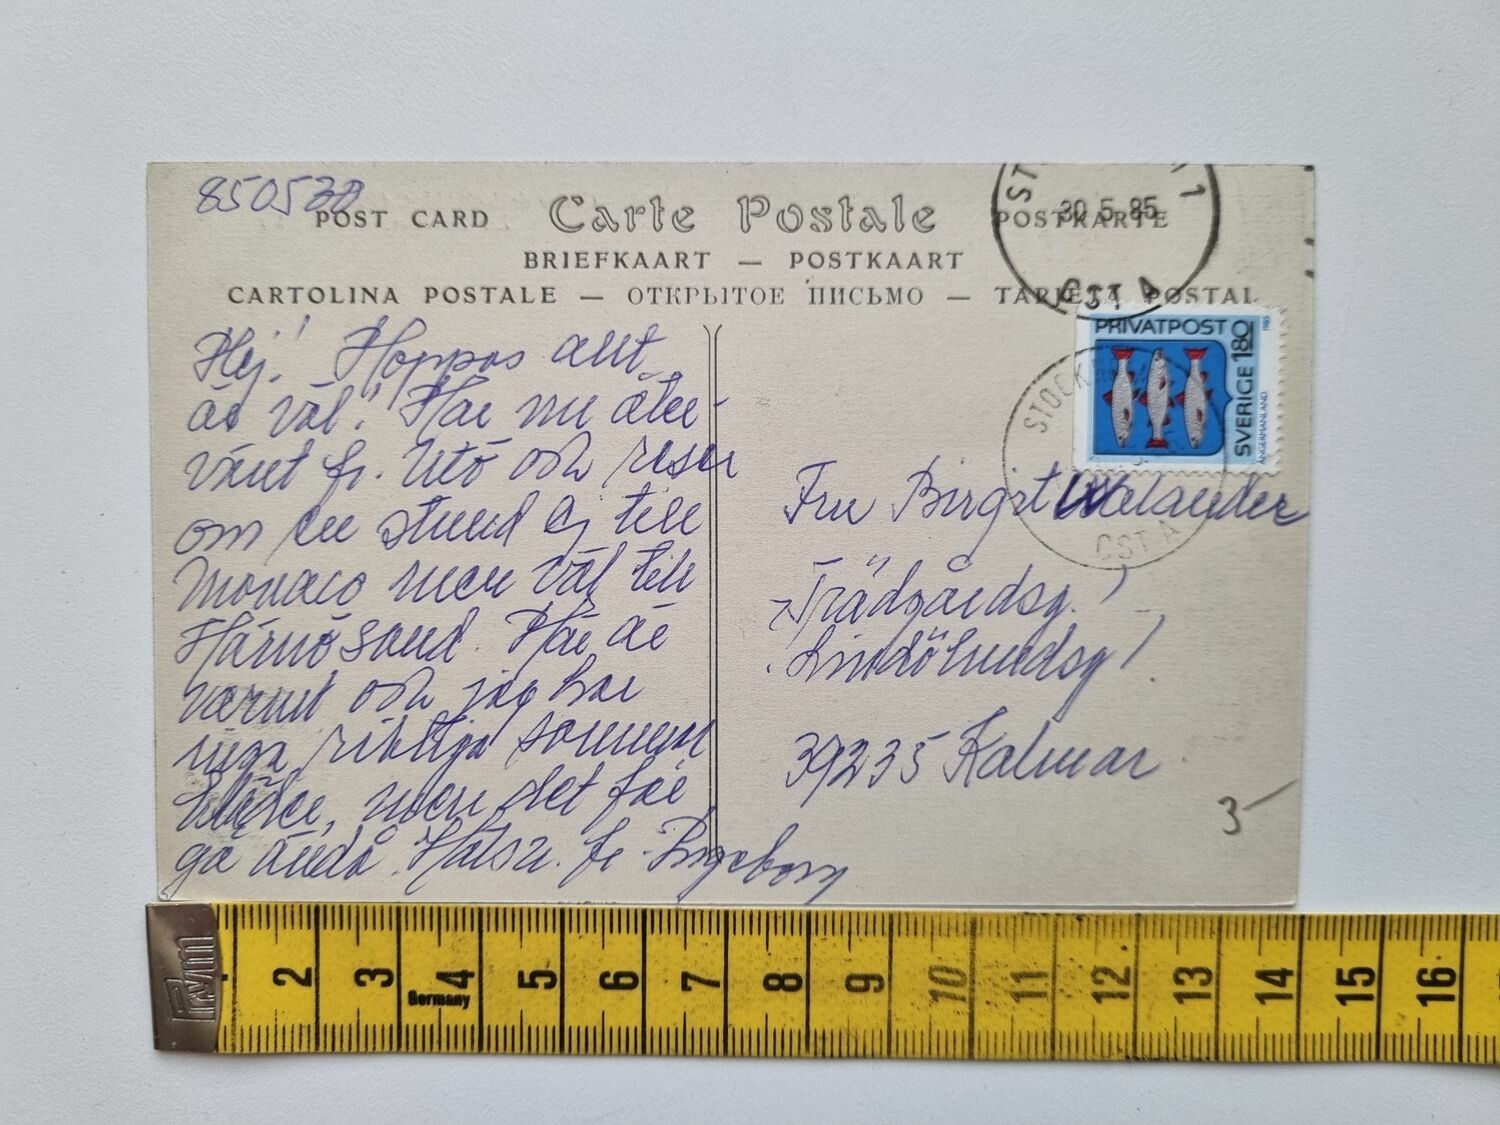 850530
POST CARD Carte Postale POSTKARTE
BRIEFKAART — POSTKAART
CARTOLINA POSTALE — ОТКРЫТОЕ ПИСЬМО — TARJETA POSTAL
30.5.85
CST A
PRIVATPOST 180
1985
SVERIGE
ÅNGERMANLAND
STOCKH
CST A
Hej! Hoppas allt
är väl. Har nu åter-
vänt fr. Utö och reser
om en stund ej till
Monaco men väl till
Härnösand. Här är
varmt och jag har
inga riktiga sommar
kläder, men det får
gå ändå. Häls. fr. Ingeborg
Fru Birgit Welander
Trädgårdsg.
39235 Kalmar
3-
Prym
2 3 4 5 6 7 8 9 10 11 12 13 14 15 16
Germany